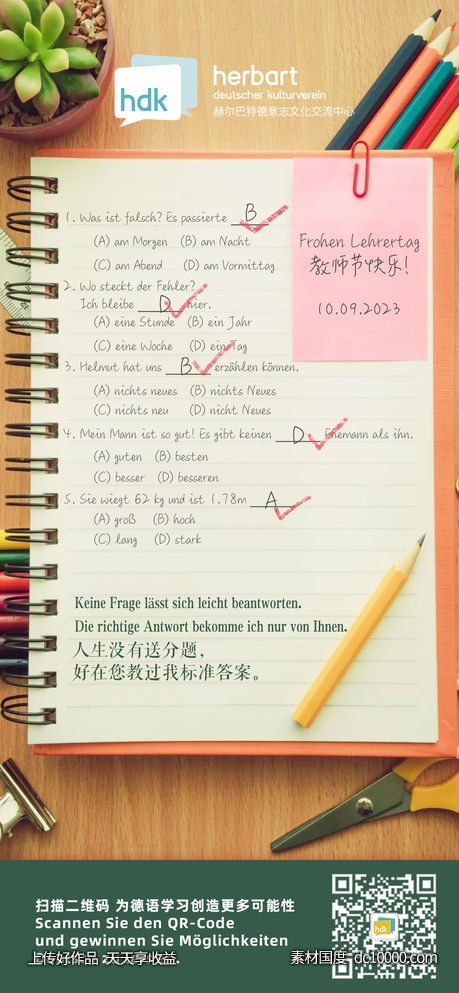 hdk
herbart
deutscher kulturverein
赫尔巴特德意志文化交流中心
Frohen Lehrertag
教师节快乐!
10.09.2023
1. Was ist falsch? Es passierte B
(A) am Morgen (B) am Nacht
(C) am Abend (D) am Vormittag
2. Wo steckt der Fehler?
Ich bleibe D hier.
(A) eine Stunde (B) ein Jahr
(C) eine Woche (D) ein Tag
3. Helmut hat uns B erzählen können.
(A) nichts neues (B) nichts Neues
(C) nichts neu (D) nicht Neues
4. Mein Mann ist so gut! Es gibt keinen D Ehemann als ihn.
(A) guten (B) besten
(C) besser (D) besseren
5. Sie wiegt 62 kg und ist 1.78m A
(A) groß (B) hoch
(C) lang (D) stark
Keine Frage lässt sich leicht beantworten.
Die richtige Antwort bekomme ich nur von Ihnen.
人生没有送分题，
好在您教过我标准答案。
扫描二维码 为德语学习创造更多可能性
Scannen Sie den QR-Code
und gewinnen Sie Möglichkeiten
上传好作品 天天享收益
素材国度 dc10000.com
hdk